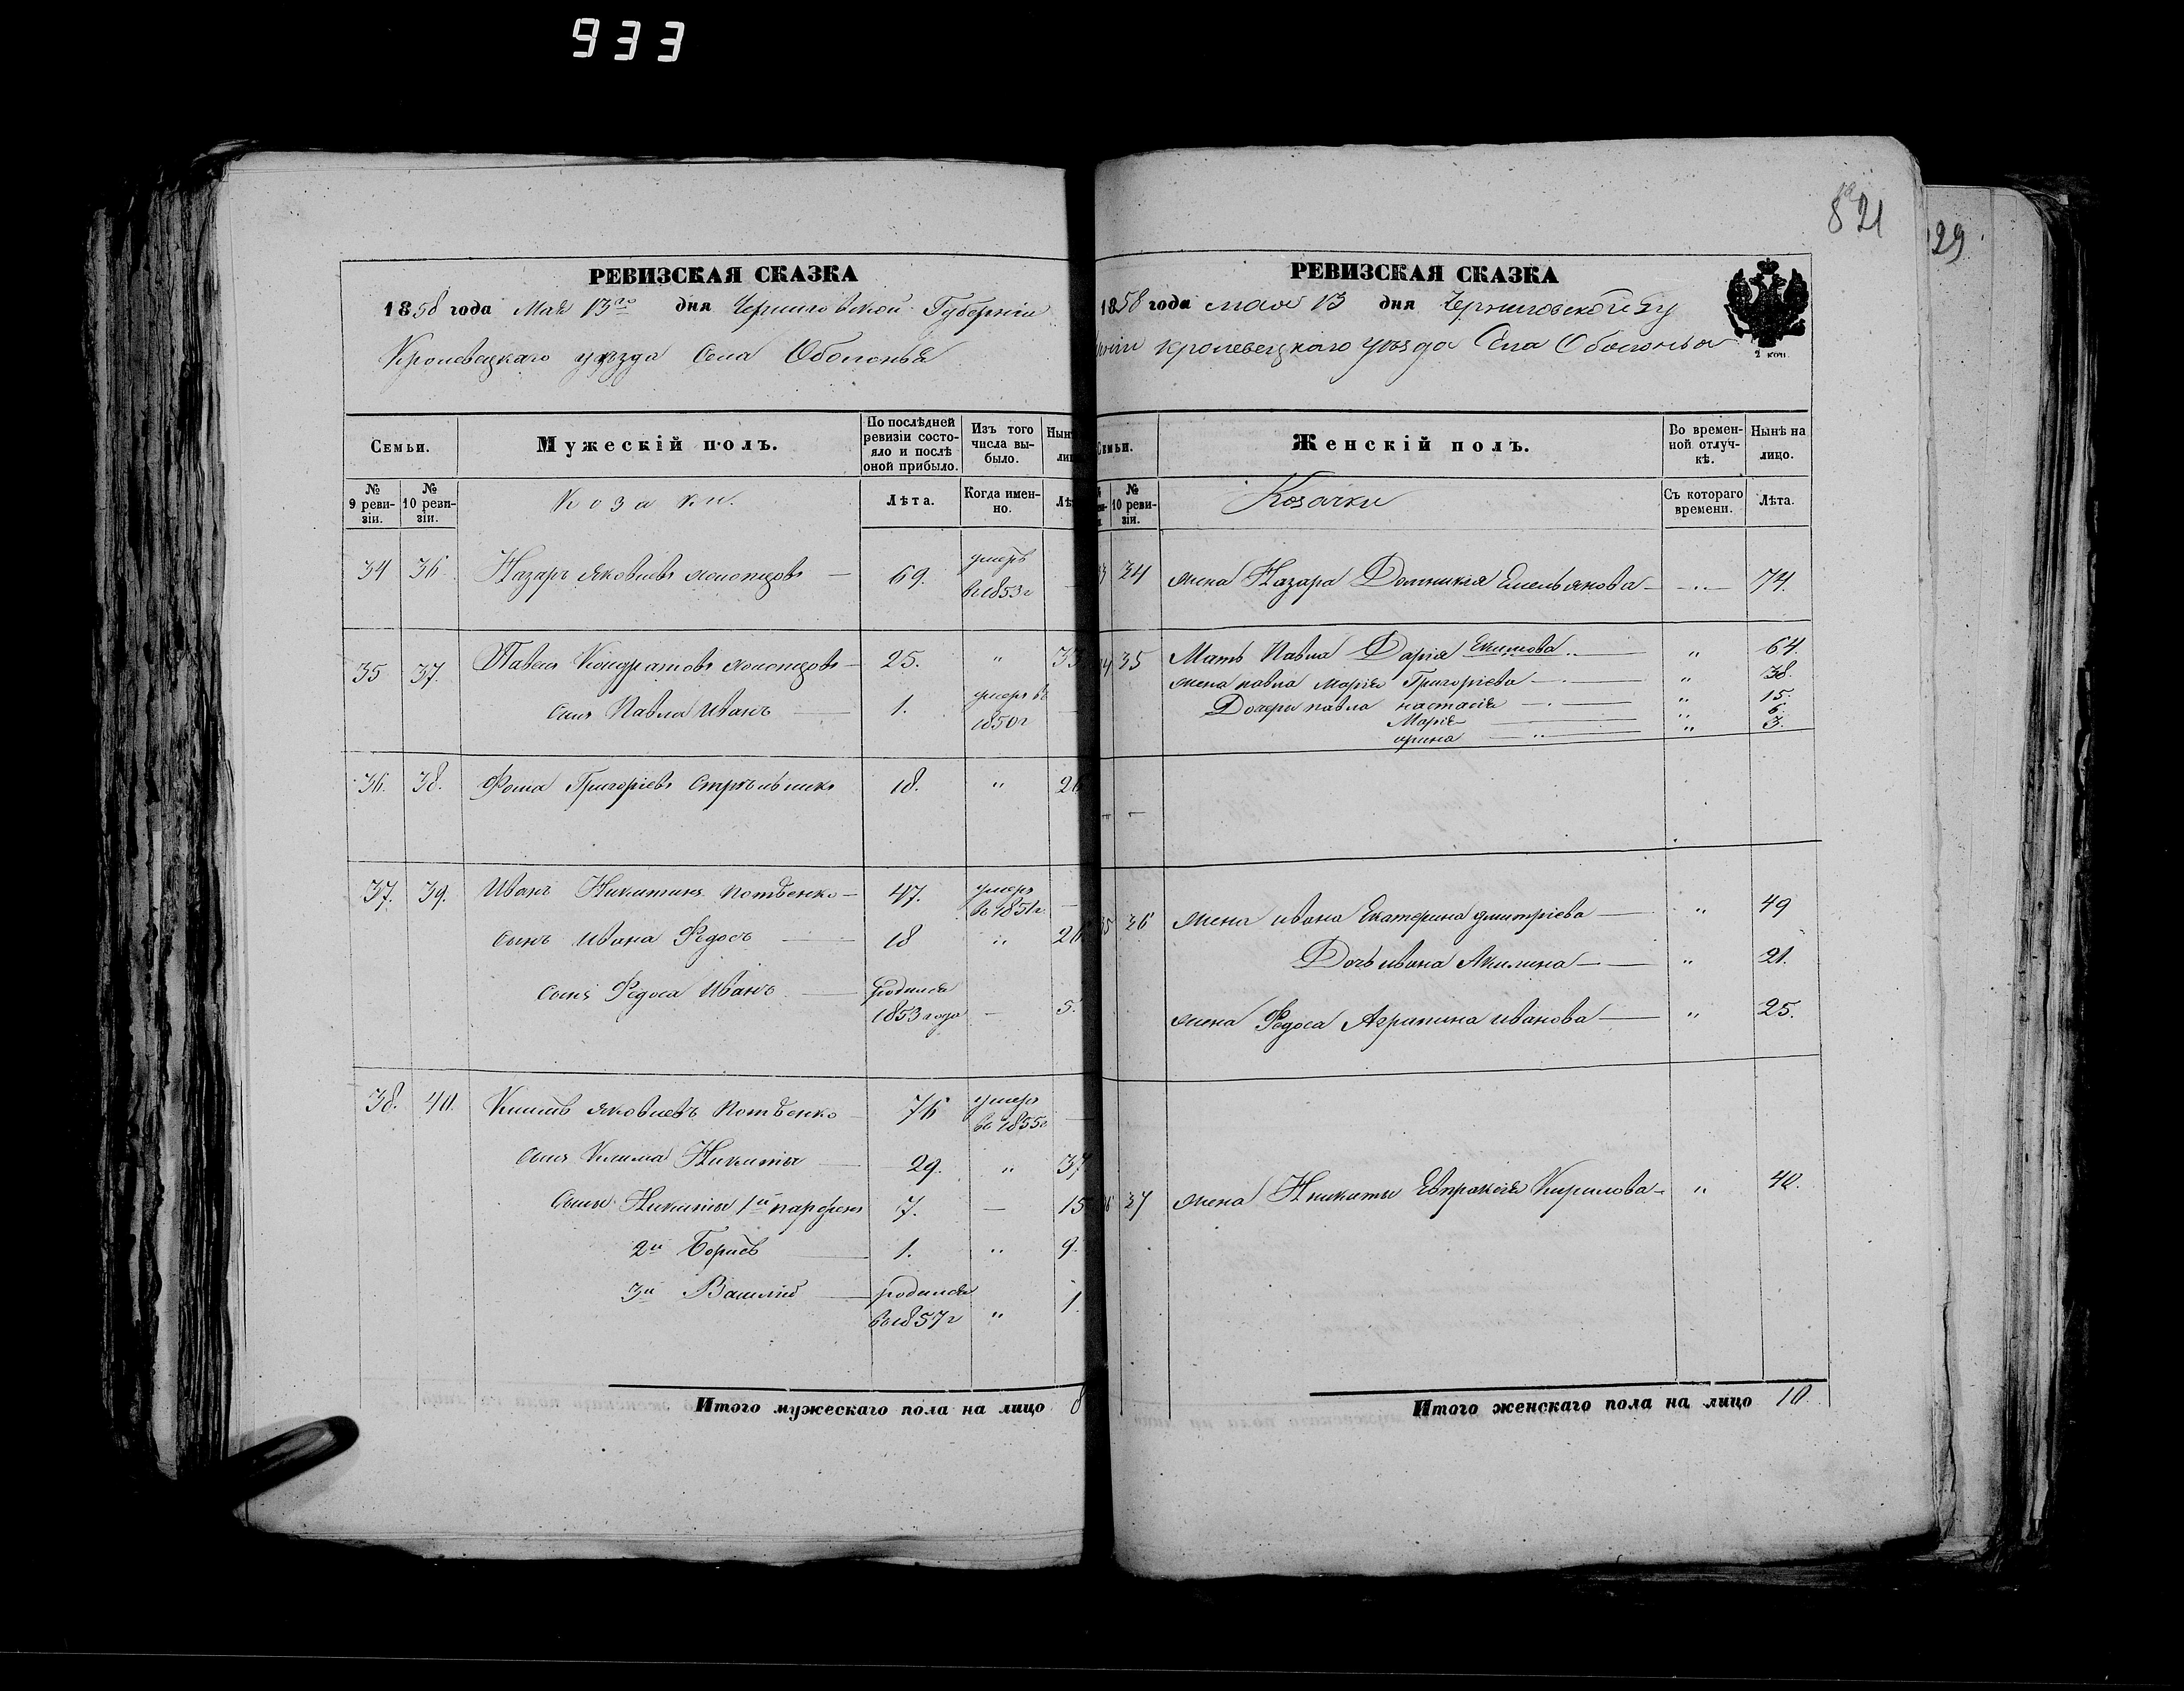 933
8 21
29
РЕВИЗСКАЯ СКАЗКА
1858 года Мая 13го дня Черниговской Губерніи
Кролевецкаго уѣзда Села Оболонья
Семьи.
Мужескій полъ.
По послѣдней ревизіи состояло и послѣ оной прибыло.
Изъ того числа выбыло.
Нын
ли
№ 9 ревизіи.
№ 10 ревизіи.
Козаки.
Лѣта.
Когда именно.
Лѣ
34 36 Назаръ Яковлевъ 69. умеръ
въ 1853г
35 37. Павелъ Кондратовъ 25. " 33
Сынъ Павла Иванъ 1. умеръ въ
1850г
36. 38. Фома Григоріевъ Стрѣльникъ 18. " 26
37. 39. Иванъ Никитинъ Потѣенко 47. умеръ
въ 1851г.
Сынъ Ивана Федосъ 18 " 26
Сынъ Федоса Иванъ родился
1853 года 5.
38. 40. Климъ Яковлевъ Потѣенко 76 умеръ
въ 1855г
Сынъ Клима Никита 29. " 37
Сыны Никиты 1й парфенъ 7. — 15
2й Борисъ 1. " 9.
3й Василій родился
въ 1857г " 1.
Итого мужескаго пола на лицо 8
РЕВИЗСКАЯ СКАЗКА
1858 года мая 13 дня Черниговской Гу
рніи Кролевецкаго уѣзда Села Оболонья
2 коп.
емьи.
Женскій полъ.
Во временной отлучкѣ.
Нынѣ на лицо.
№ 10 ревизіи.
Козачки
Съ котораго времени.
Лѣта.
34 жена Назара Домникія Емельянова 74.
35 Мать Павла Дарія Екимова " 64.
жена павла Марія Григоріева " 38.
Дочери павла настасія " 15.
Марія " 6.
ирина " 3.
36 жена ивана Екатерина дмитріева " 49
Дочь ивана Акилина " 21.
жена Федоса Агрипина иванова " 25.
37 жена Никиты Евпраксія Кирилова " 40.
Итого женскаго пола на лицо 10